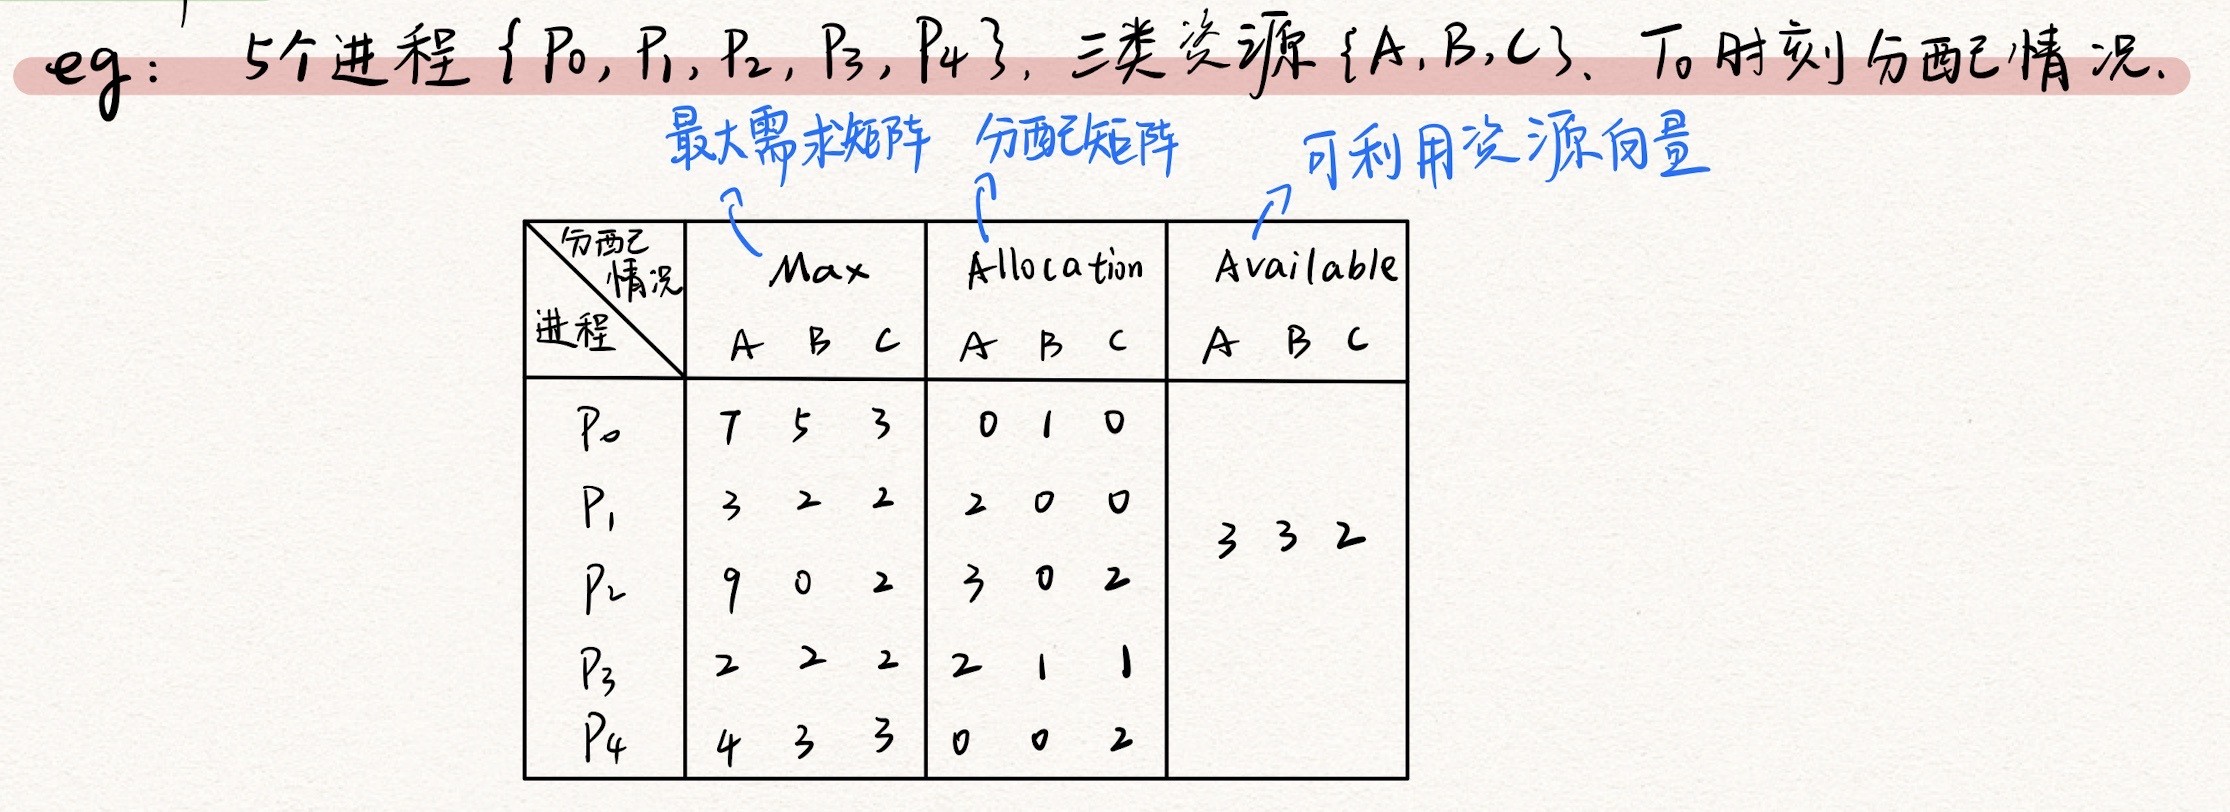 eg: 5个进程 {P0, P1, P2, P3, P4}, 三类资源 {A, B, C}、T0时刻分配情况.
最大需求矩阵 分配矩阵 可利用资源向量
分配情况 进程 Max Allocation Available
A B C A B C A B C
P0 7 5 3 0 1 0
P1 3 2 2 2 0 0
3 3 2
P2 9 0 2 3 0 2
P3 2 2 2 2 1 1
P4 4 3 3 0 0 2